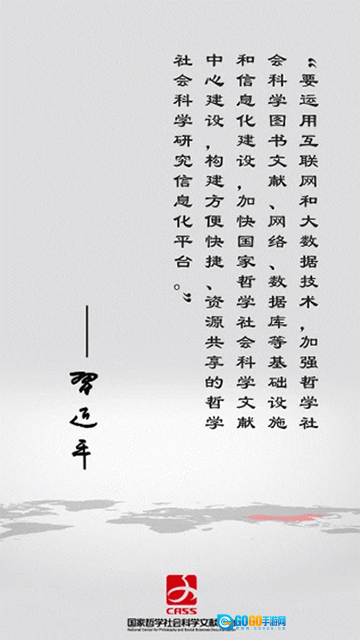 “要运用互联网和大数据技术，加强哲学社
会科学图书文献、网络、数据库等基础设施
和信息化建设，加快国家哲学社会科学文献
中心建设，构建方便快捷、资源共享的哲学
社会科学研究信息化平台。”
——习近平
CASS
国家哲学社会科学文献
National Center for Philosophy and Social Sciences Documentation
GOGO手游网